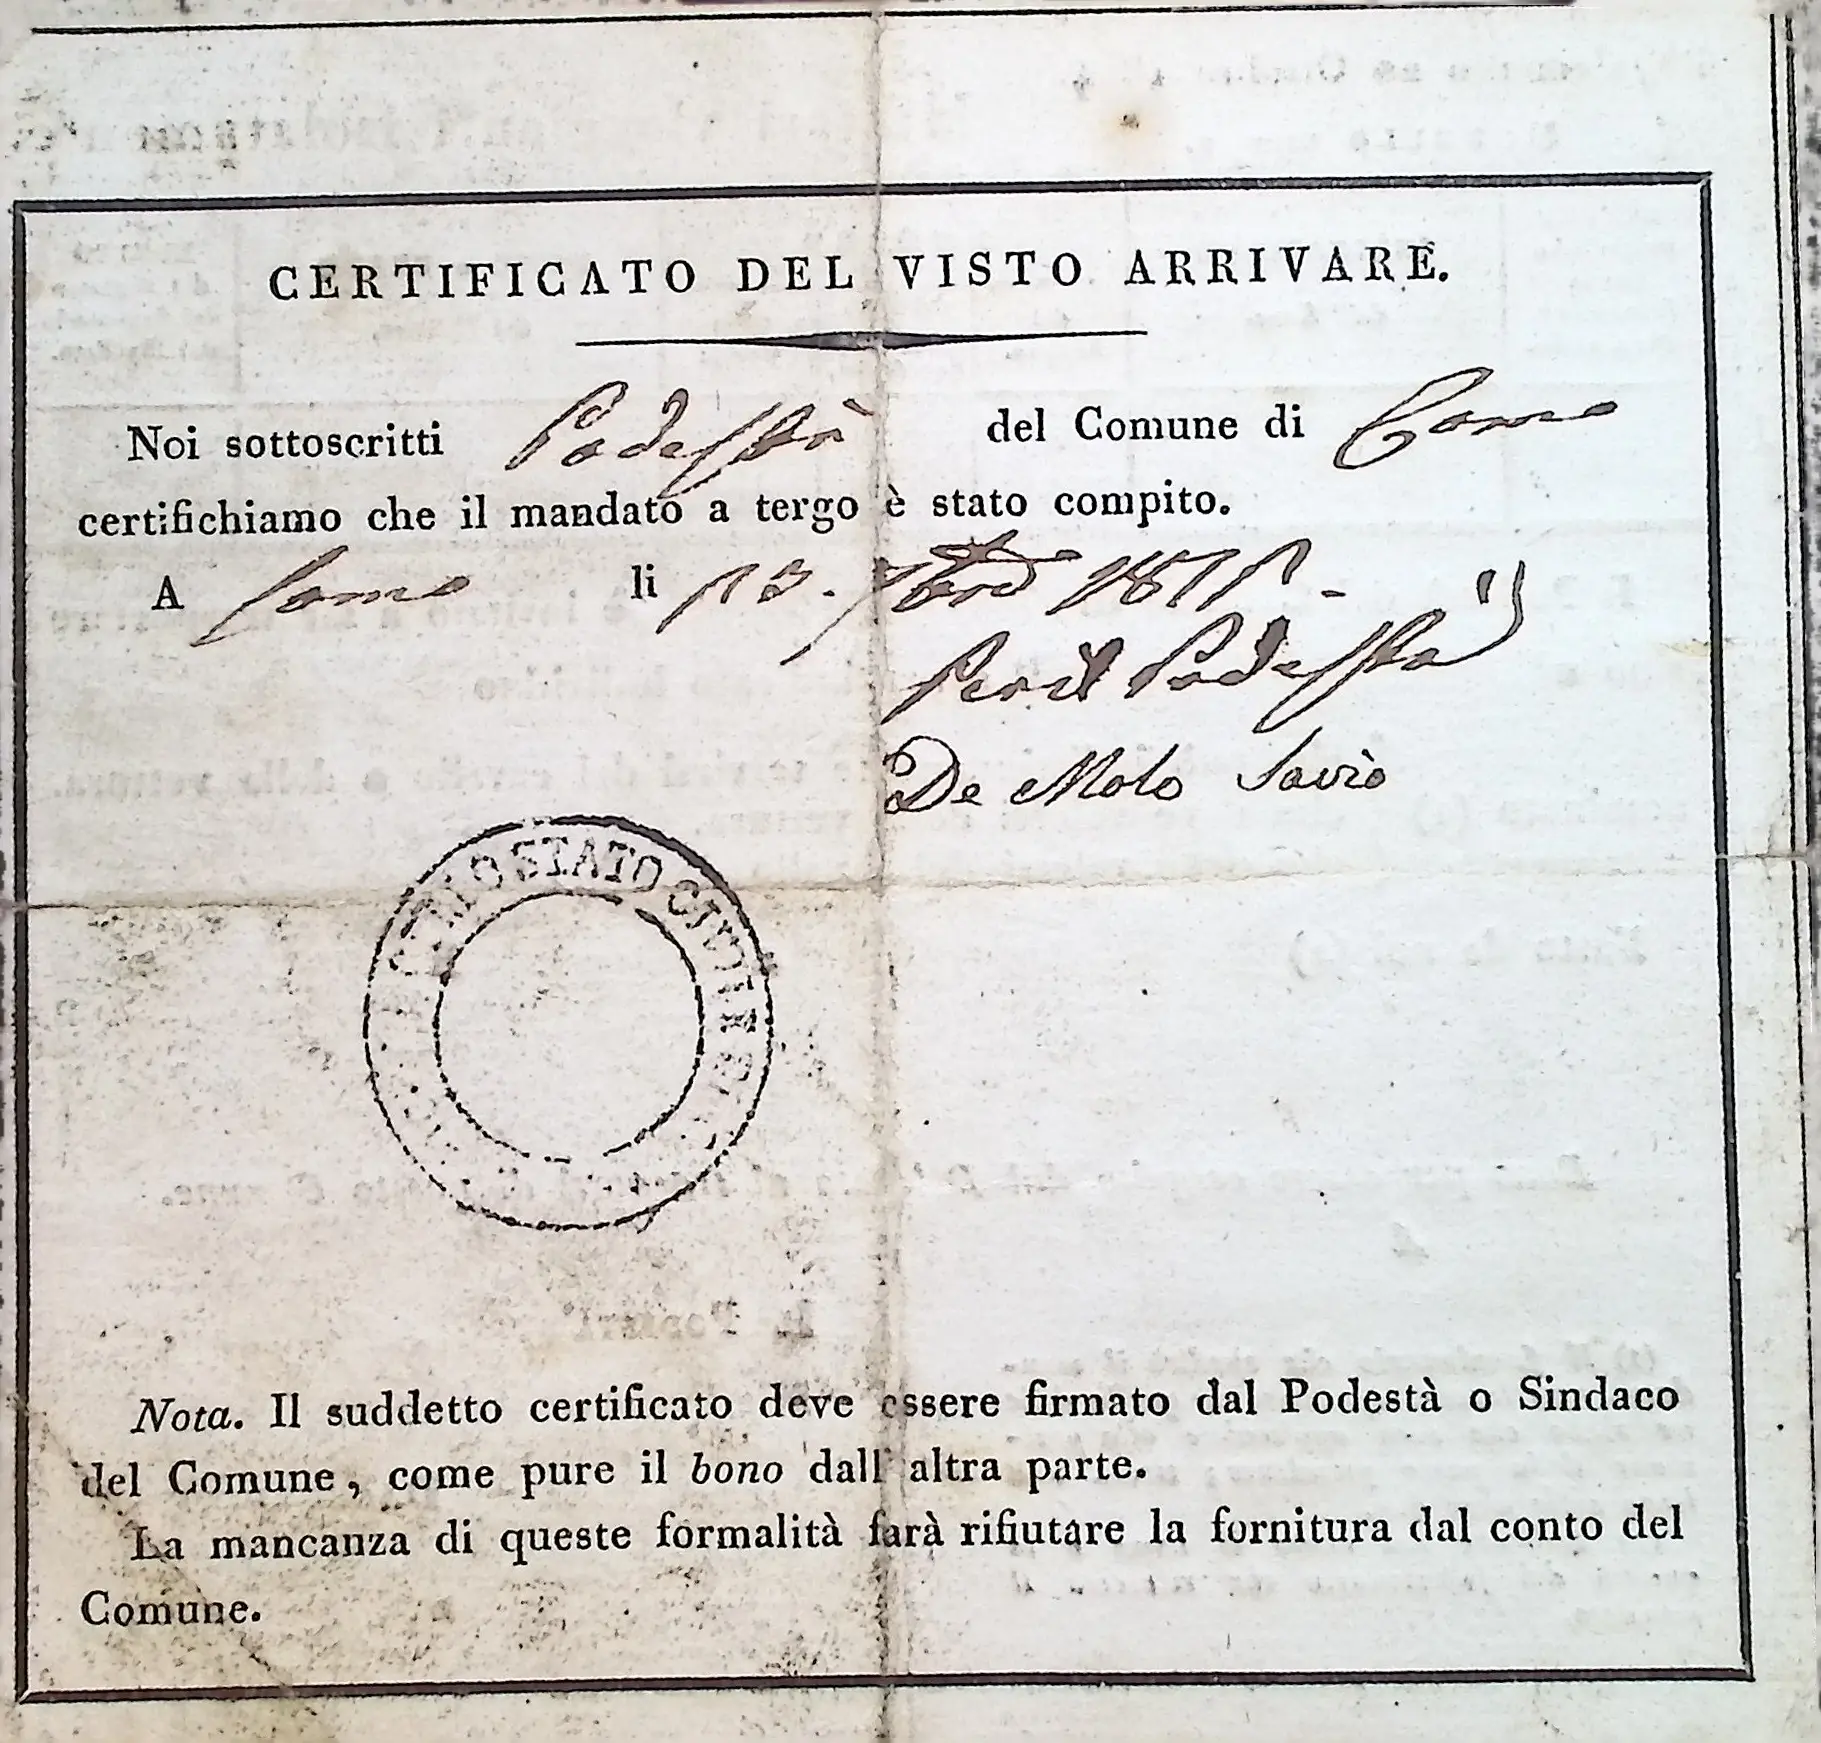 CERTIFICATO DEL VISTO ARRIVARE.
Noi sottoscritti Podestà del Comune di Como
certifichiamo che il mandato a tergo è stato compito.
A Como li 13. 7bre 1811.
Per il Podestà
De Molo Savio
STATO CIVILE
Nota. Il suddetto certificato deve essere firmato dal Podestà o Sindaco
del Comune, come pure il bono dall' altra parte.
La mancanza di queste formalità farà rifiutare la fornitura dal conto del
Comune.